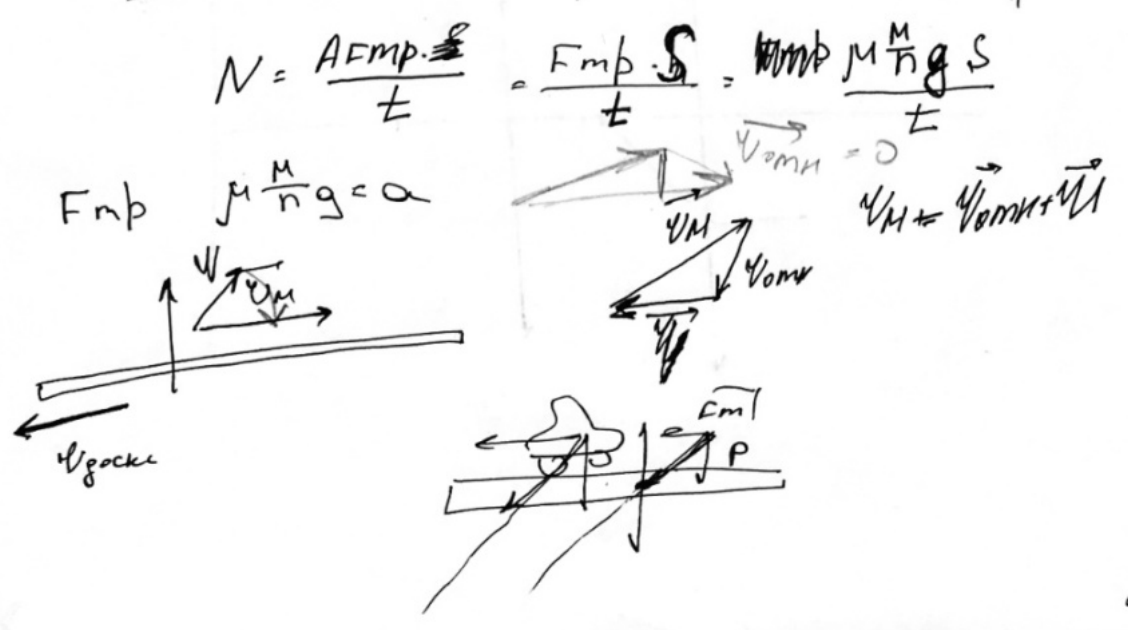 N = AFтр. / t = Fтр · S / t = μ M/n g S / t
v⃗отн = 0
Fтр μ M/n g = a
vм = v⃗отн + u⃗
vм
vотн
vм
vдоски
Fт
P